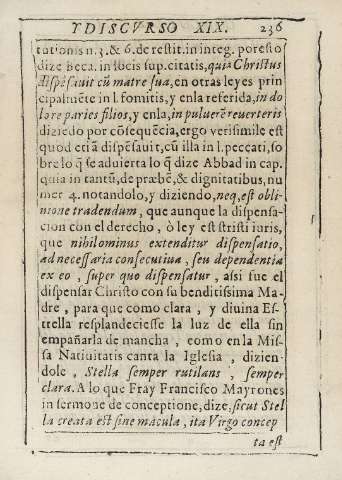 Y DISCVRSO XIX. 236
tutionis n.3.& 6. de restit. in integ. por esto
dize Beca. in locis sup. citatis, quia Christus
dispẽsauit cũ matre sua, en otras leyes prin
cipalmẽte in l. fomitis, y enla referida, in do
lore paries filios, y enla, in puluerẽ reuerteris
diziẽdo por cõsequẽcia, ergo verisimile est
quod etiã dispẽsauit, cũ illa in l. peccati, so
bre lo q̃ se aduierta lo q̃ dize Abbad in cap.
quia in tantũ, de præbẽ, & dignitatibus, nu
mer 4. notandolo, y diziendo, neq, est obli-
uione tradendum, que aunque la dispensa-
cion con el derecho, ò ley est stristi iuris,
que nihilominus extenditur dispensatio,
ad necessaria consecutiua, seu dependentia
ex eo, super quo dispensatur, assi fue el
dispensar Christo con su benditissima Ma
dre, para que como clara, y diuina Es-
trella resplandeciesse la luz de ella sin
empañarla de mancha, como en la Mis-
sa Natiuitatis canta la Iglesia, dizien-
dole, Stella semper rutilans, semper
clara. A lo que Fray Francisco Mayrones
in sermone de conceptione, dize, sicut Stel
la creata est sine macula, ita Virgo concep
ta est